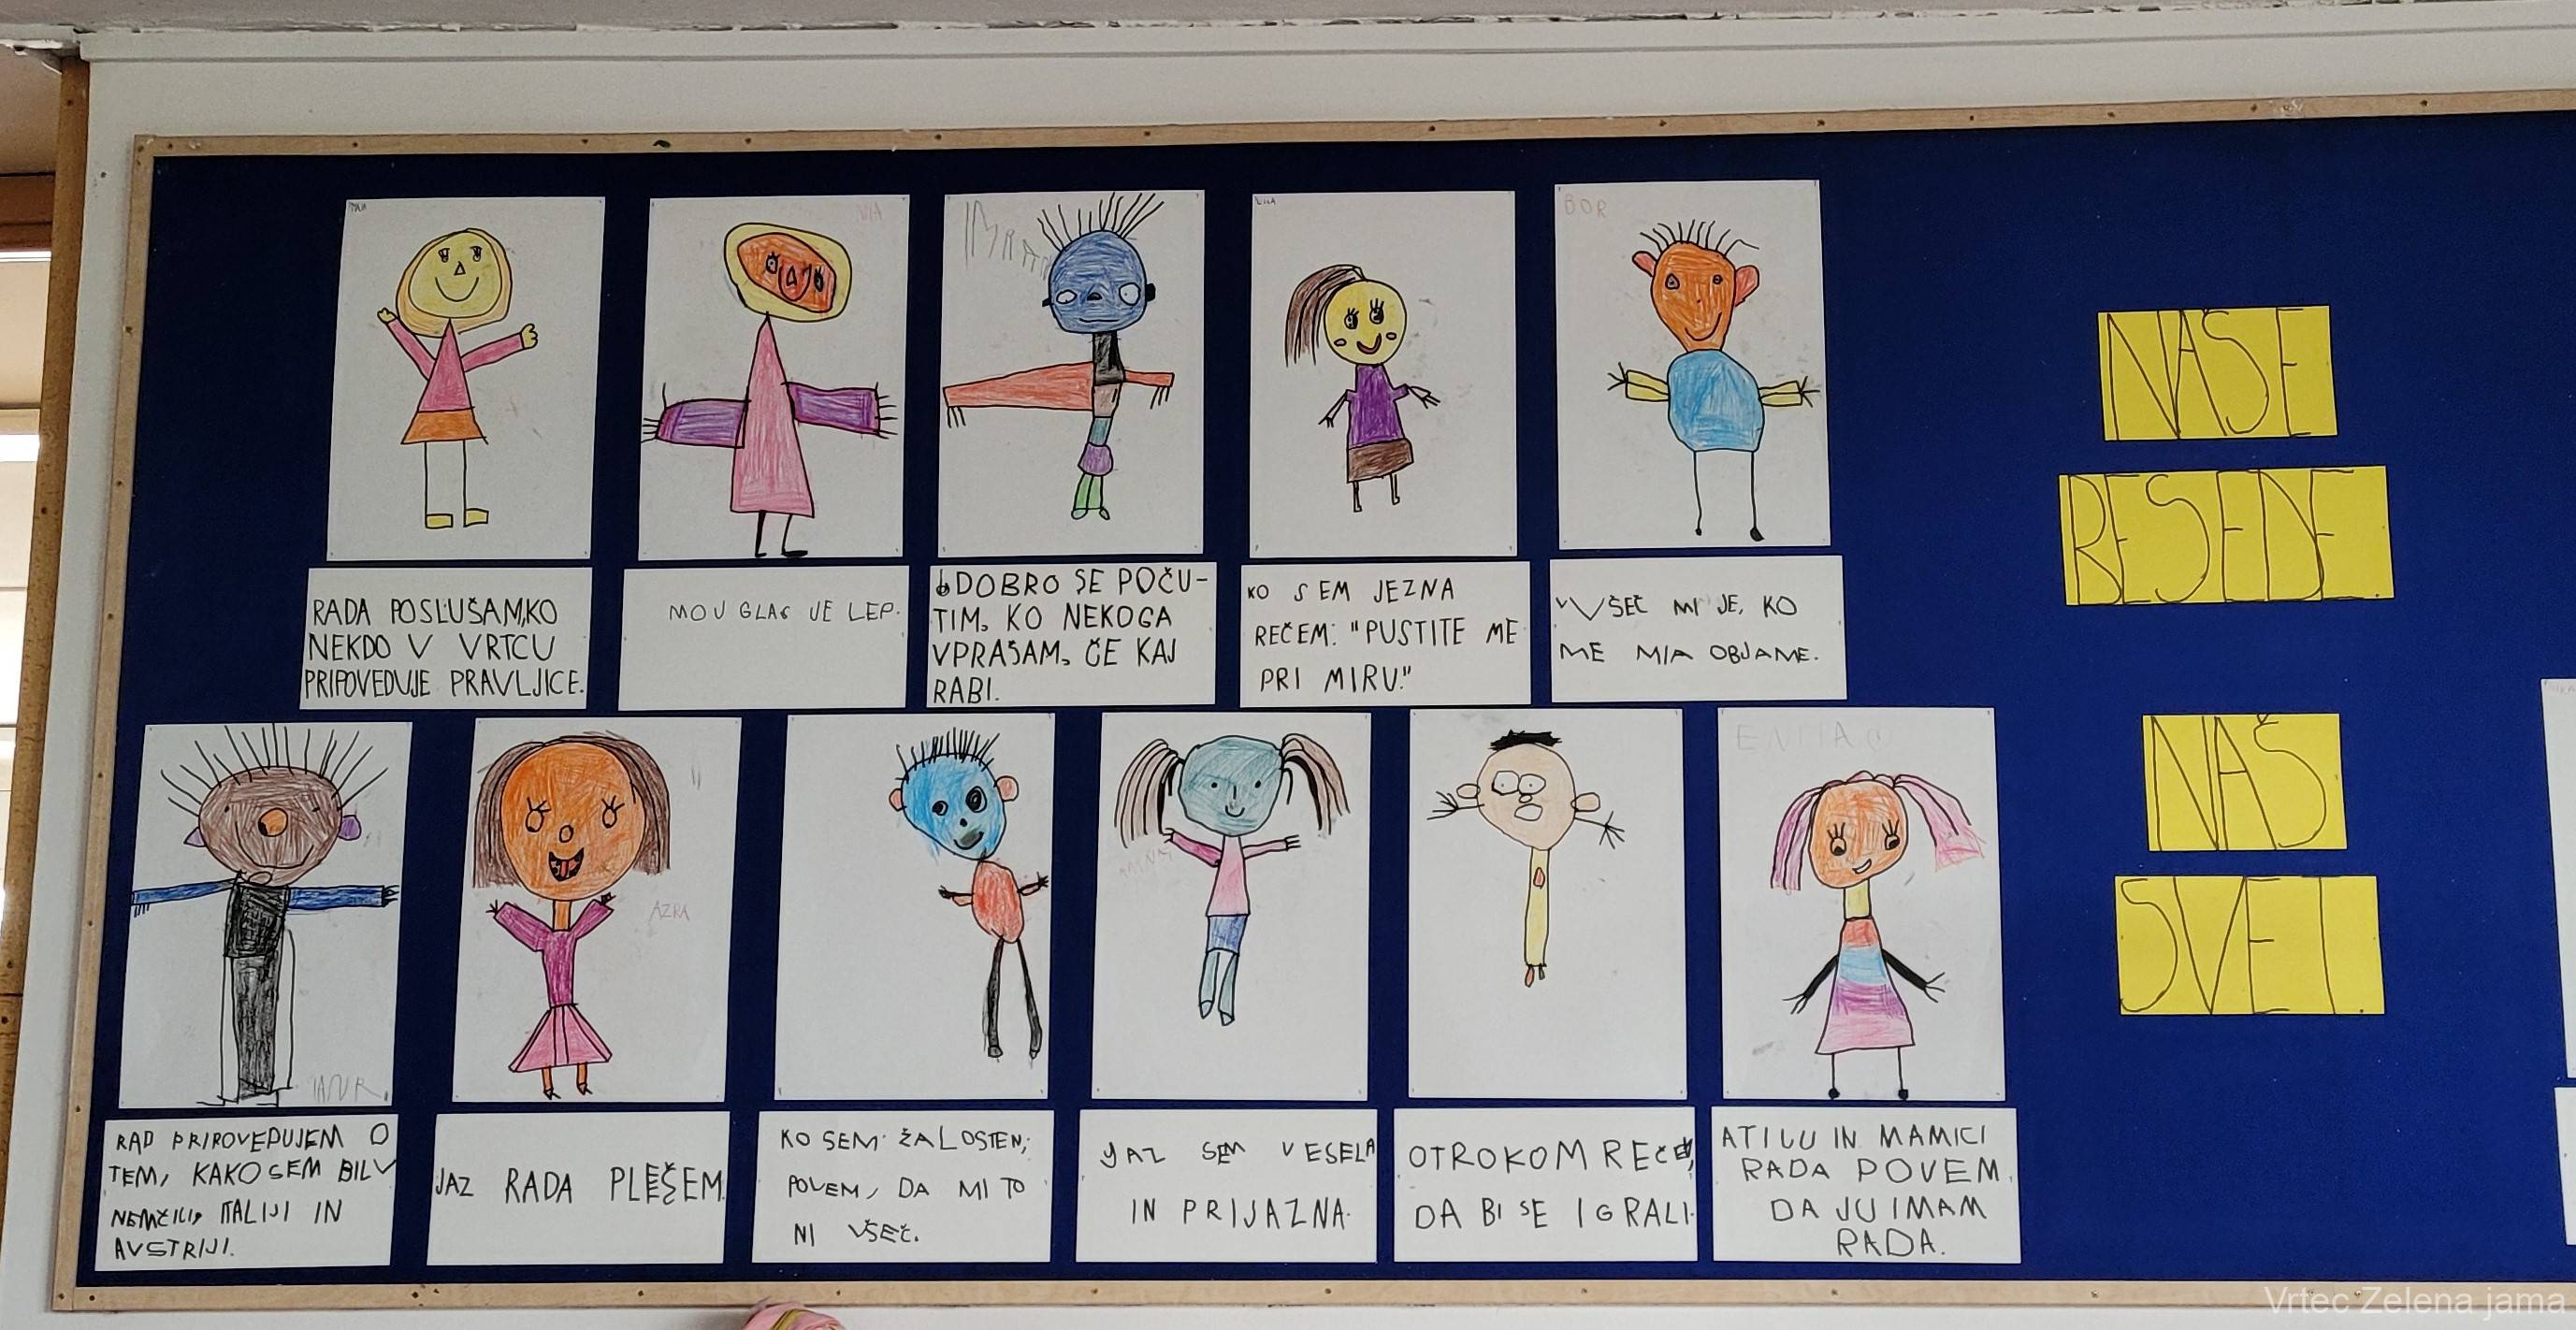 NIA
IMRAN
BOR
NAŠE
BESEDE.
NAŠ
SVET.
RADA POSLUŠAM,KO
NEKDO V VRTCU
PRIPOVEDUJE PRAVLJICE.
MOJ GLAS JE LEP.
DOBRO SE POČU-
TIM, KO NEKOGA
VPRAŠAM, ČE KAJ
RABI.
KO SEM JEZNA
REČEM: "PUSTITE ME
PRI MIRU."
VŠEČ MI JE, KO
ME MIA OBJAME.
AZRA
RAD PRIPOVEDUJEM O
TEM, KAKO SEM BIL V
NEMČIJI, ITALIJI IN
AVSTRIJI.
JAZ RADA PLEŠEM
KO SEM ŽALOSTEN,
POVEM, DA MI TO
NI VŠEČ.
JAZ SEM VESELA
IN PRIJAZNA.
OTROKOM REČEM,
DA BI SE IGRALI.
ATIJU IN MAMICI
RADA POVEM,
DA JU IMAM
RADA.
Vrtec Zelena jama